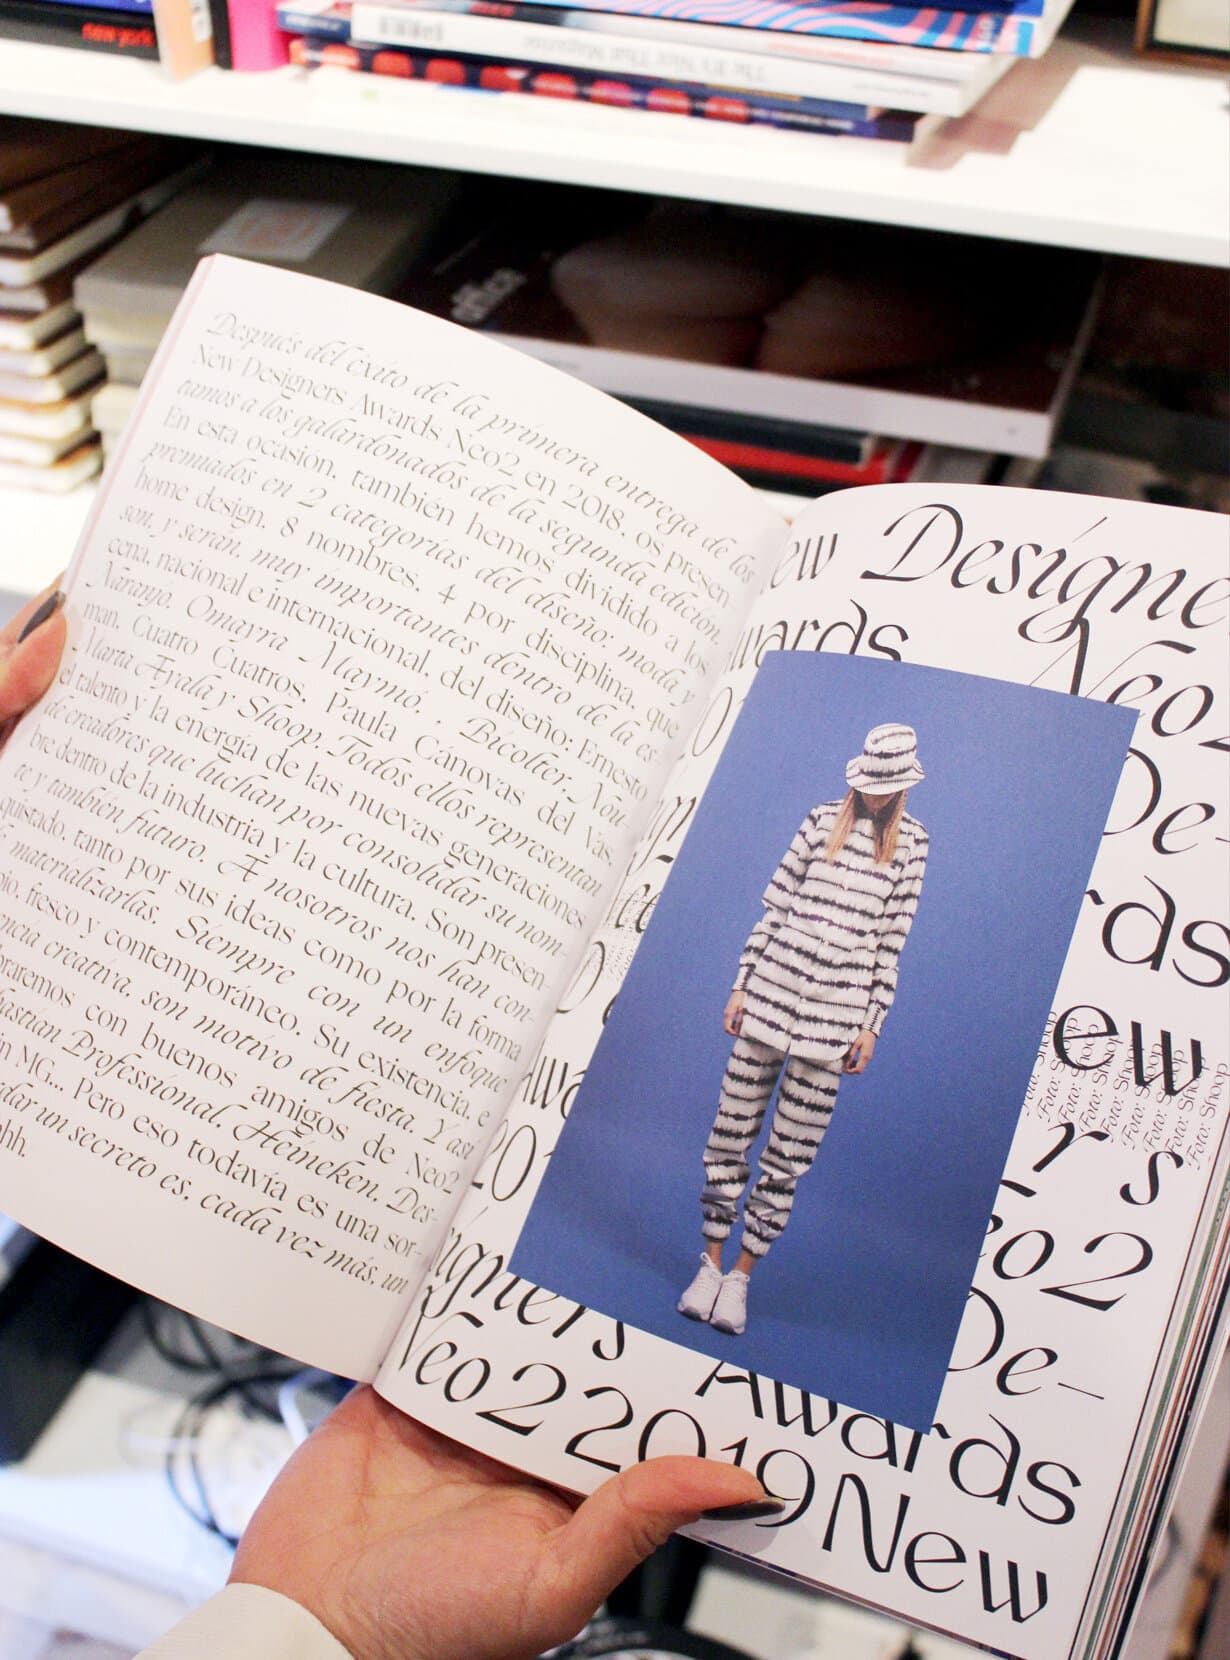 The It's Nice That Magazine
office
Después del éxito de la primera entrega de los
New Designers Awards Neo2 en 2018, os presen
tamos a los galardonados de la segunda edición.
En esta ocasión, también hemos dividido a los
premiados en 2 categorías del diseño: moda y
home design. 8 nombres, 4 por disciplina, que
son, y serán, muy importantes dentro de la es-
cena, nacional e internacional, del diseño: Ernesto
Naranjo, Omayra Maymó, , Bicolter, Nou-
man, Cuatro Cuatros, Paula Cánovas del Vas,
Marta Ayala y Shoop. Todos ellos representan
el talento y la energía de las nuevas generaciones
de creadores que luchan por consolidar su nom-
bre dentro de la industria y la cultura. Son presen-
te y también futuro. A nosotros nos han con-
quistado, tanto por sus ideas como por la forma
materializarlas. Siempre con un enfoque
fresco y contemporáneo. Su existencia, e
creativa, son motivo de fiesta. Y así
con buenos amigos de Neo2
Professional, Heineken, Des-
MG... Pero eso todavía es una sor-
un secreto es, cada vez más, un
ew Designe
wards Neo2
De-
rds
ew
Foto: Shoop
Foto: Shoop
Foto: Shoop
Foto: Shoop
Foto: Shoop
Foto: Shoop
Foto: Shoop
Foto: Shoop
rs
eo2
20
De-
igners Awards
Neo2 2019 New